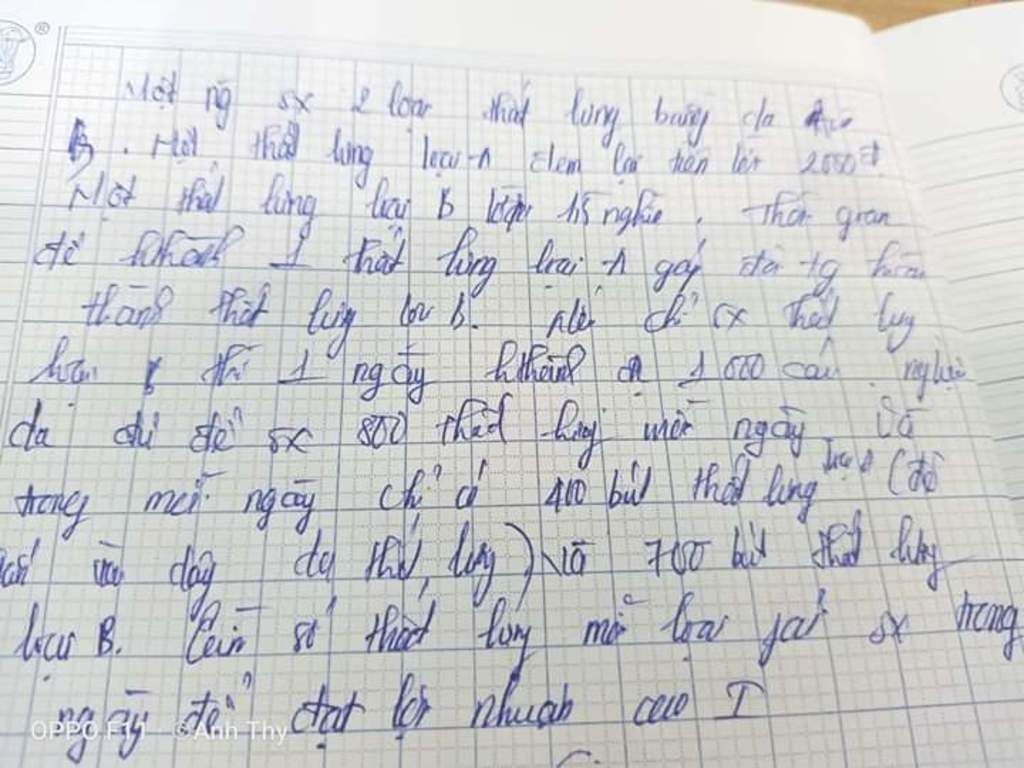 Một ng sx 2 loại thắt lưng bằng da A và
B. Một thắt lưng loại A đem lại tiền lời 2000đ.
Một thắt lưng loại B lời nghìn. Thời gian
để hthành 1 thắt lưng loại A gấp đôi tg hoàn
thành thắt lưng loại B. Nếu chỉ sx thắt lưg
loại B thì 1 ngày hthành đc 1000 cái.
da chỉ đủ để sx 800 thắt lưng mỗi ngày và
trong mỗi ngày chỉ có 400 bút thắt lưng loại A (đồ
gắn vào dây da thắt lưng) và 700 bút thắt lưng
loại B. số thắt lưng mỗi loại phải sx trong
ngày để đạt lợi nhuận cao I
OPPO F11 ©Anh Thy